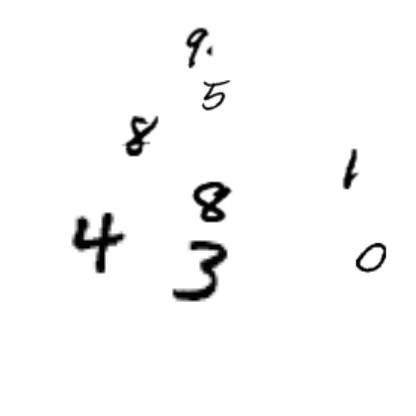 9.
5
8
1
8
4
3
0